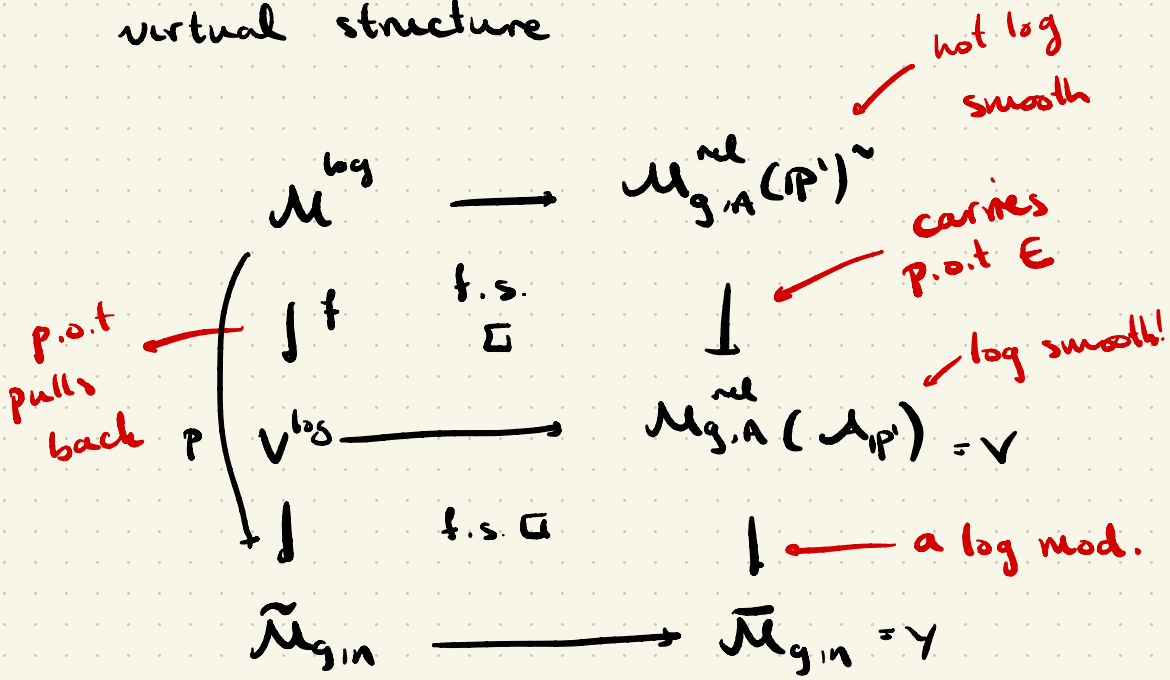 virtual structure
not log
smooth
M^log → M^rel_{g,A}(P¹)~
carries
p.o.t E
f f.s. □
p.o.t
pulls
back
log smooth!
p V^log → M^rel_{g,A}(A_{P¹}) = V
f.s. □
a log mod.
M̃_{g,n} → M̄_{g,n} = Y